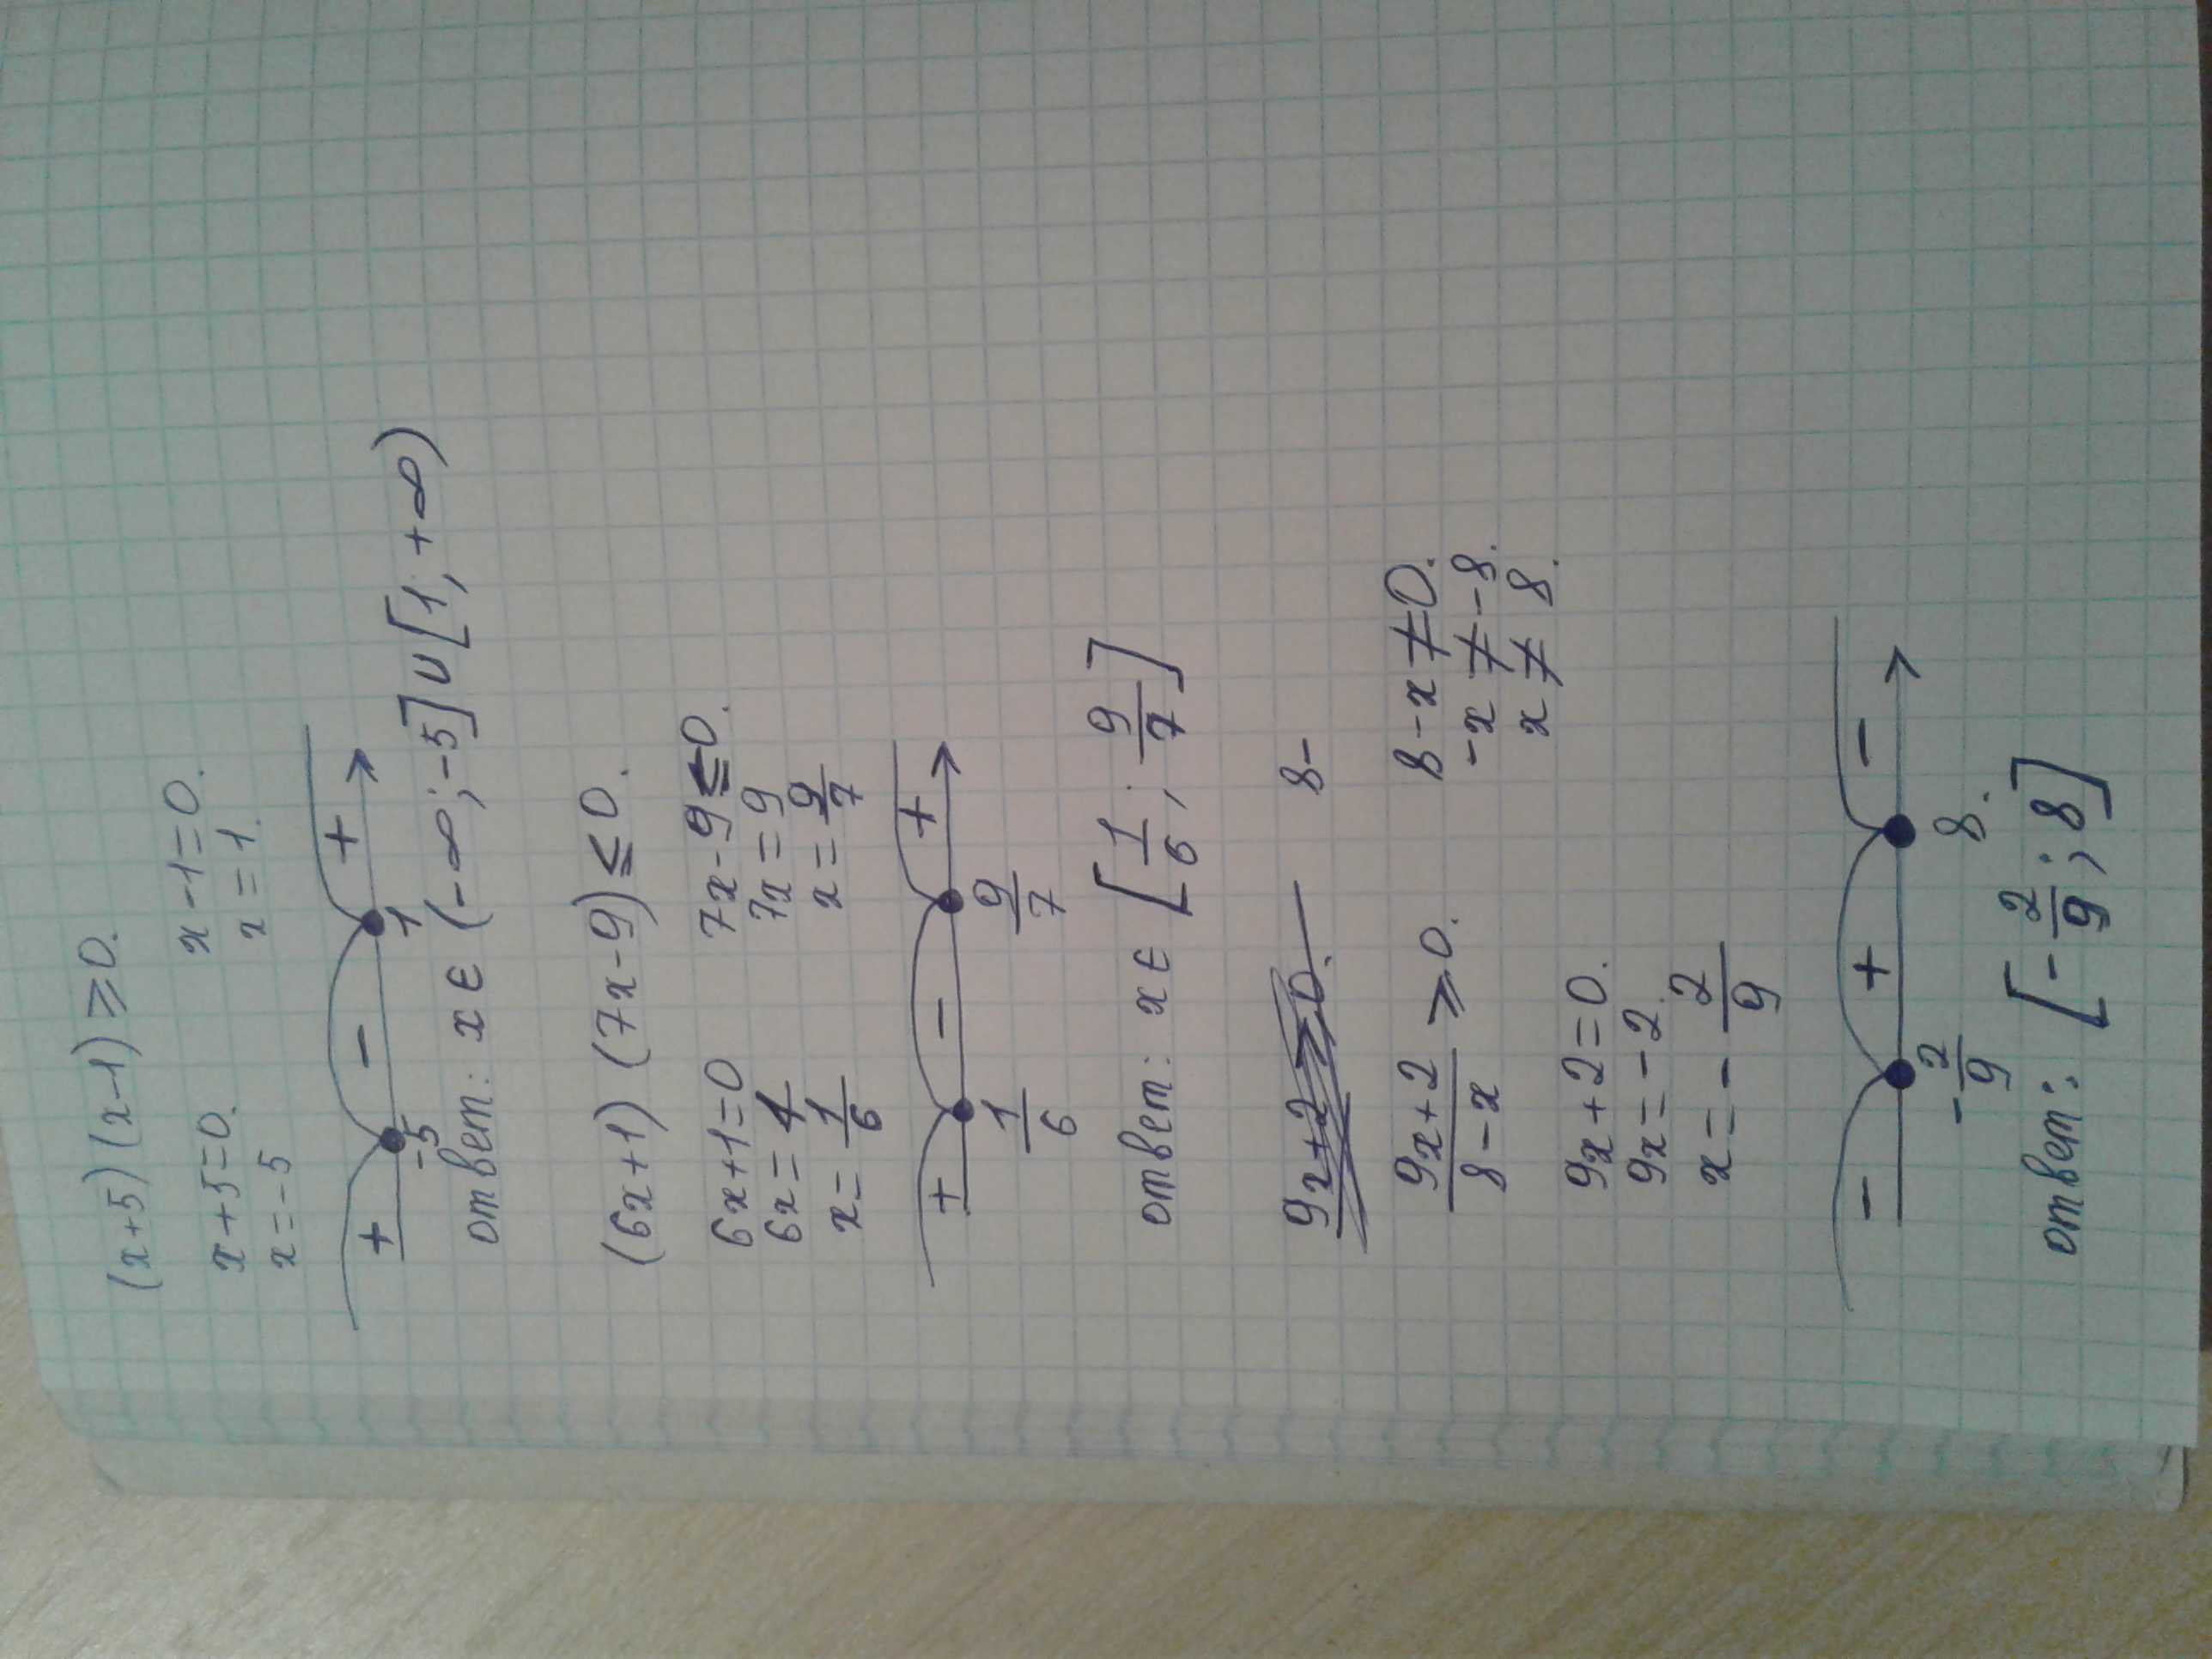 (x+5)(x-1)⩾0.
x+5=0. x-1=0.
x=-5 x=1.
+ - + 
-5 1
ответ: x ∈ (-∞;-5]∪[1;+∞)
(6x+1)(7x-9)≤0.
6x+1=0 7x-9≤0.
6x=1 7x=9
x=1/6 x=9/7
+ - +
1/6 9/7
ответ: x ∈ [1/6; 9/7]
9x+2⩾0. 8-
(9x+2)/(8-x) ⩾0. 8-x≠0.
-x≠-8.
x≠8.
9x+2=0.
9x=-2.
x=-2/9
- + -
-2/9 8.
ответ: [-2/9; 8]